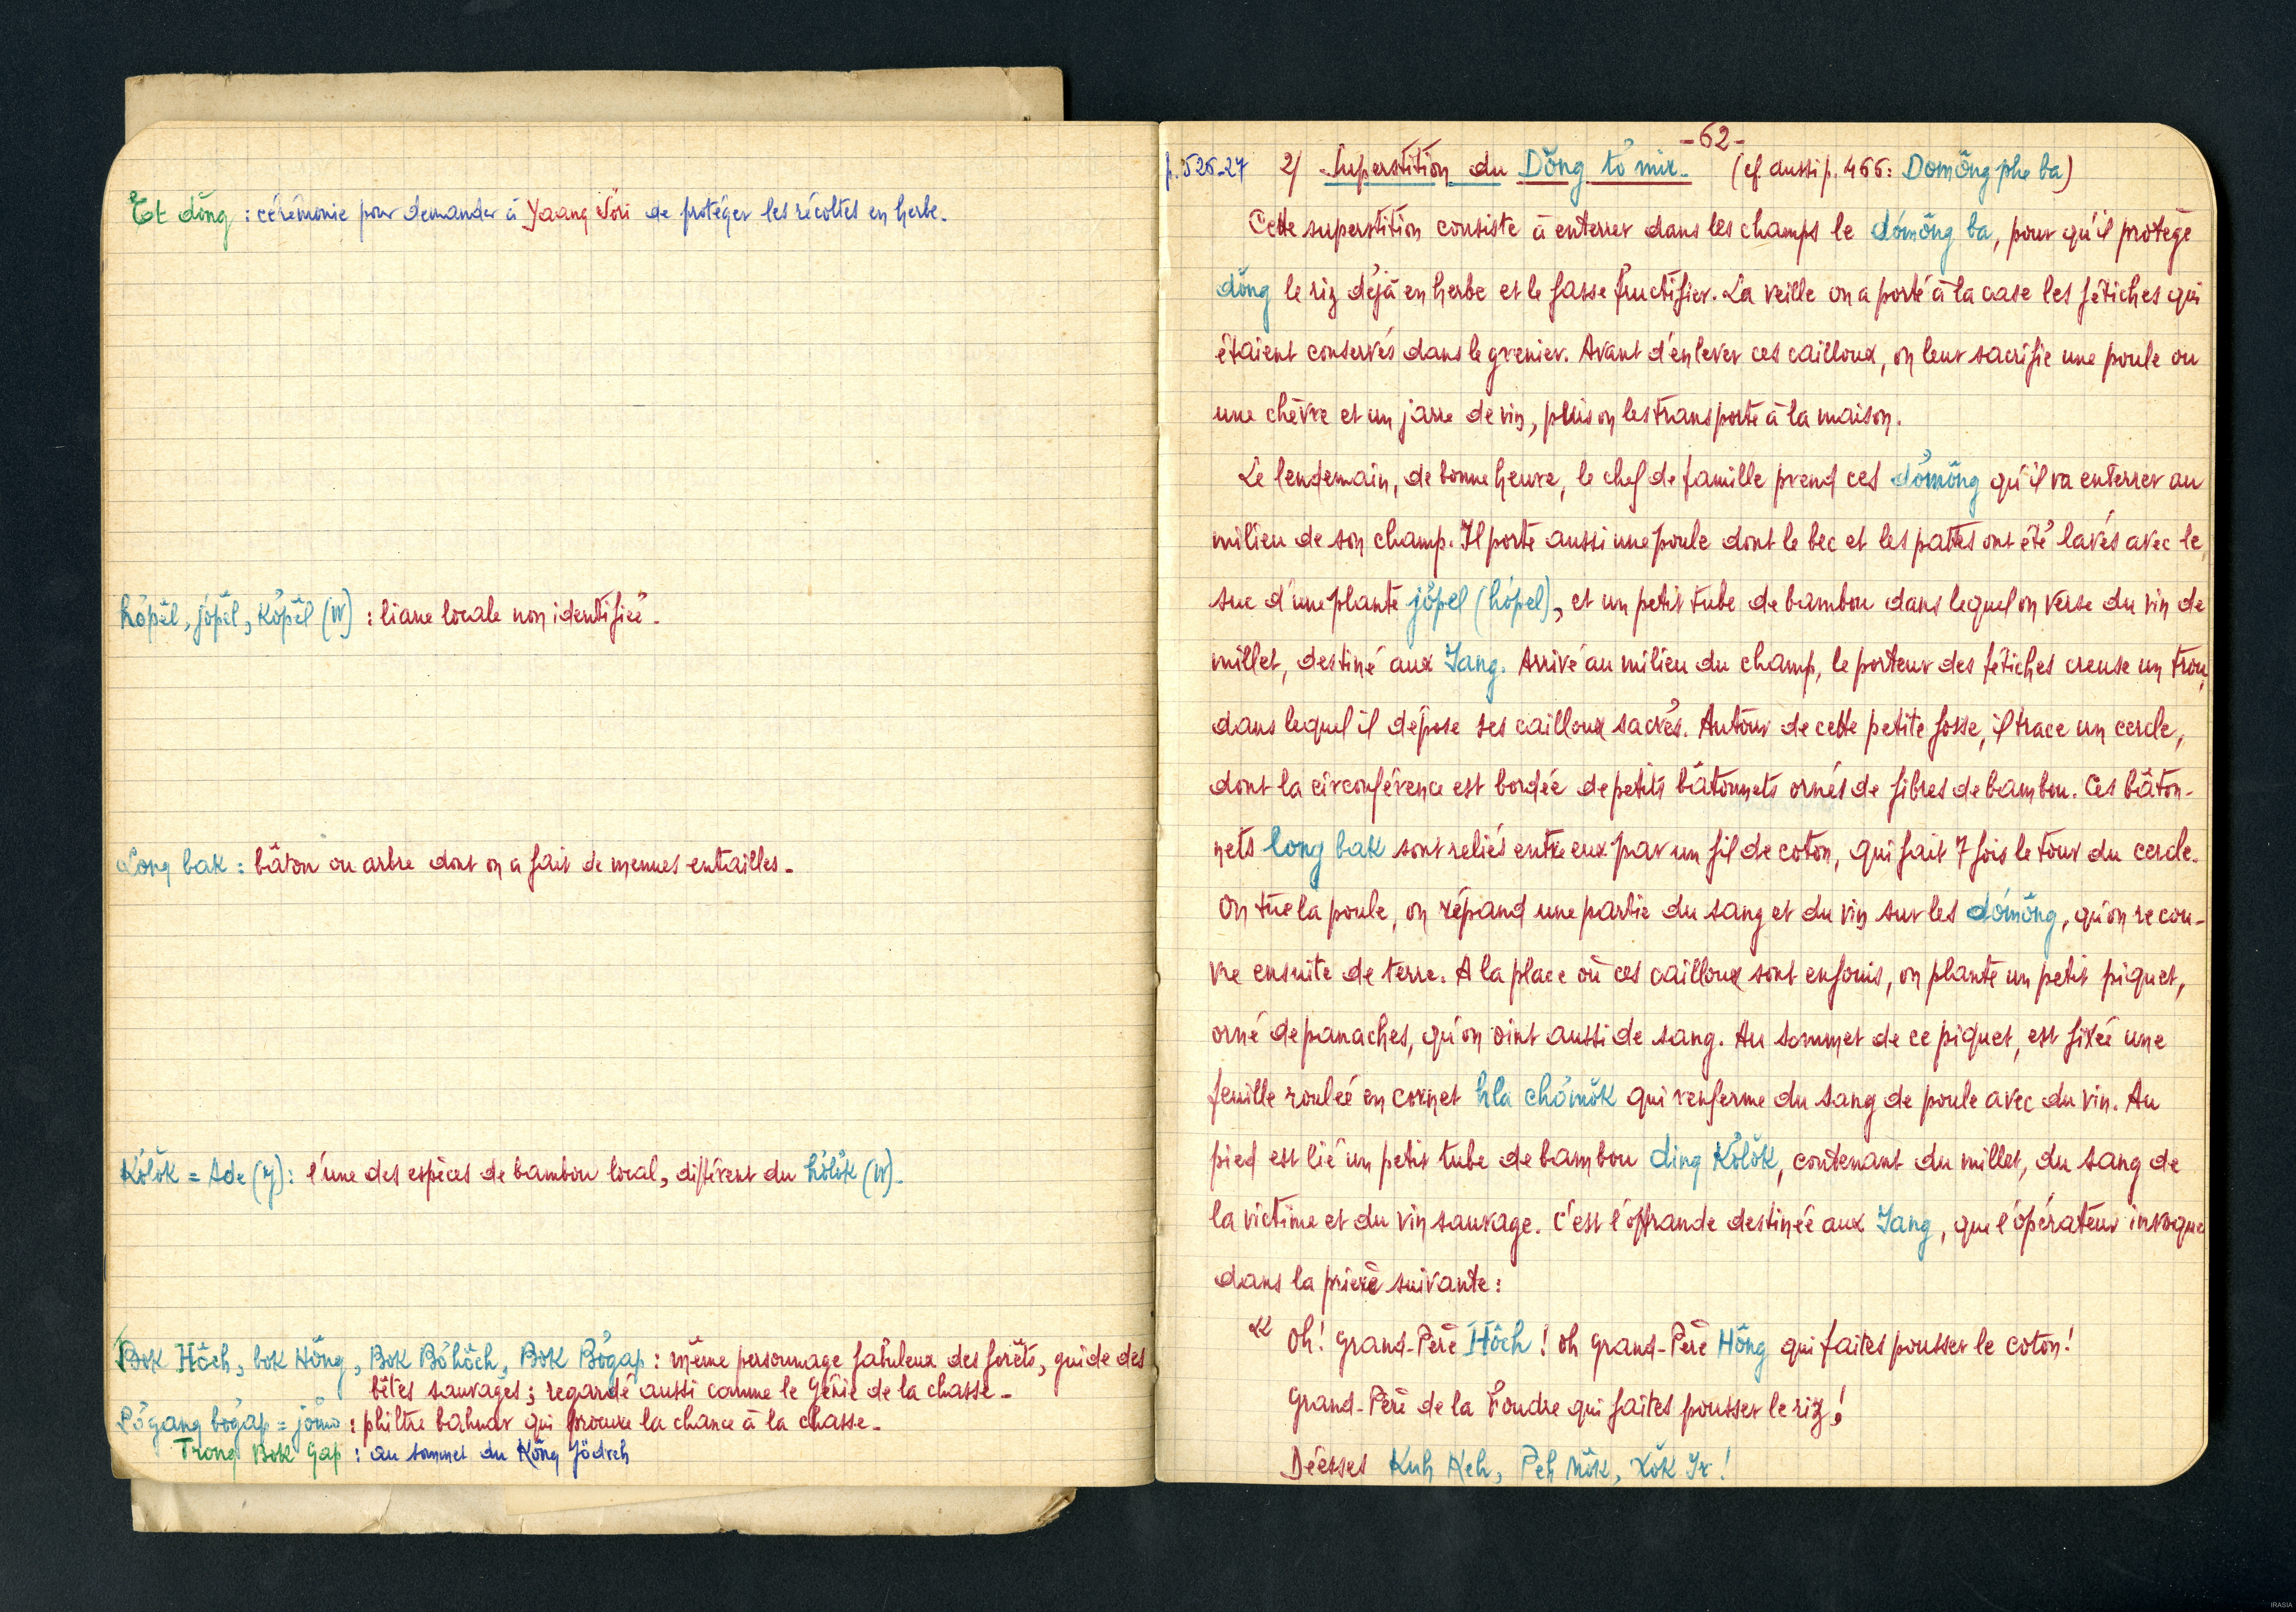 Tơt dŏng : cérémonie pour demander à Yaang Sơri de protéger les récoltes en herbe.
hơpĕl, jơpĕl, kơpĕl (W) : liane locale non identifiée.
Long bak : bâton ou arbre dont on a fait de menues entailles.
Kơlŏk = Ade (y) : l'une des espèces de bambou local, différent du hơlŏk (W).
Bok Hŏch, bok Hŏng, Bok Bơhŏch, Bok Bơgap : même personnage fabuleux des forêts, guide des
bêtes sauvages ; regardé aussi comme le Génie de la chasse.
Pơgang bơgap = jơmơ : philtre bahnar qui procure la chance à la chasse.
Trong Bok Gap : au sommet du Kŏng Jŏdreh
-62-
p. 526-27 2/ Superstition du Dŏng tơ mir. (cf. aussi p. 466: Domŏng phe ba)
Cette superstition consiste à enterrer dans les champs le dơmŏng ba, pour qu'il protège
dŏng le riz déjà en herbe et le fasse fructifier. La veille on a porté à la case les fétiches qui
étaient conservés dans le grenier. Avant d'enlever ces cailloux, on leur sacrifie une poule ou
une chèvre et un jarre de vin, puis on les transporte à la maison.
Le lendemain, de bonne heure, le chef de famille prend ces dơmŏng qu'il va enterrer au
milieu de son champ. Il porte aussi une poule dont le bec et les pattes ont été lavés avec le
suc d'une plante jơpel (hơpel), et un petit tube de bambou dans lequel on verse du vin de
millet, destiné aux Iang. Arrivé au milieu du champ, le porteur des fétiches creuse un trou,
dans lequel il dépose ses cailloux sacrés. Autour de cette petite fosse, il trace un cercle,
dont la circonférence est bordée de petits bâtonnets ornés de fibres de bambou. Ces bâton-
nets long bak sont reliés entre eux par un fil de coton, qui fait 7 fois le tour du cercle.
On tue la poule, on répand une partie du sang et du vin sur les dơmŏng, qu'on recou-
vre ensuite de terre. A la place où ces cailloux sont enfouis, on plante un petit piquet,
orné de panaches, qu'on oint aussi de sang. Au sommet de ce piquet, est fixée une
feuille roulée en cornet hla chơmŏk qui renferme du sang de poule avec du vin. Au
pied est lié un petit tube de bambou ding Kơlŏk, contenant du millet, du sang de
la victime et du vin sauvage. C'est l'offrande destinée aux Iang, que l'opérateur invoque
dans la prière suivante :
« Oh! Grand-Père Hŏch ! Oh Grand-Père Hŏng qui faites pousser le coton!
Grand-Père de la Foudre qui faites pousser le riz !
Déesses Kuh Keh, Peh Mŏk, Xŏk Ir !